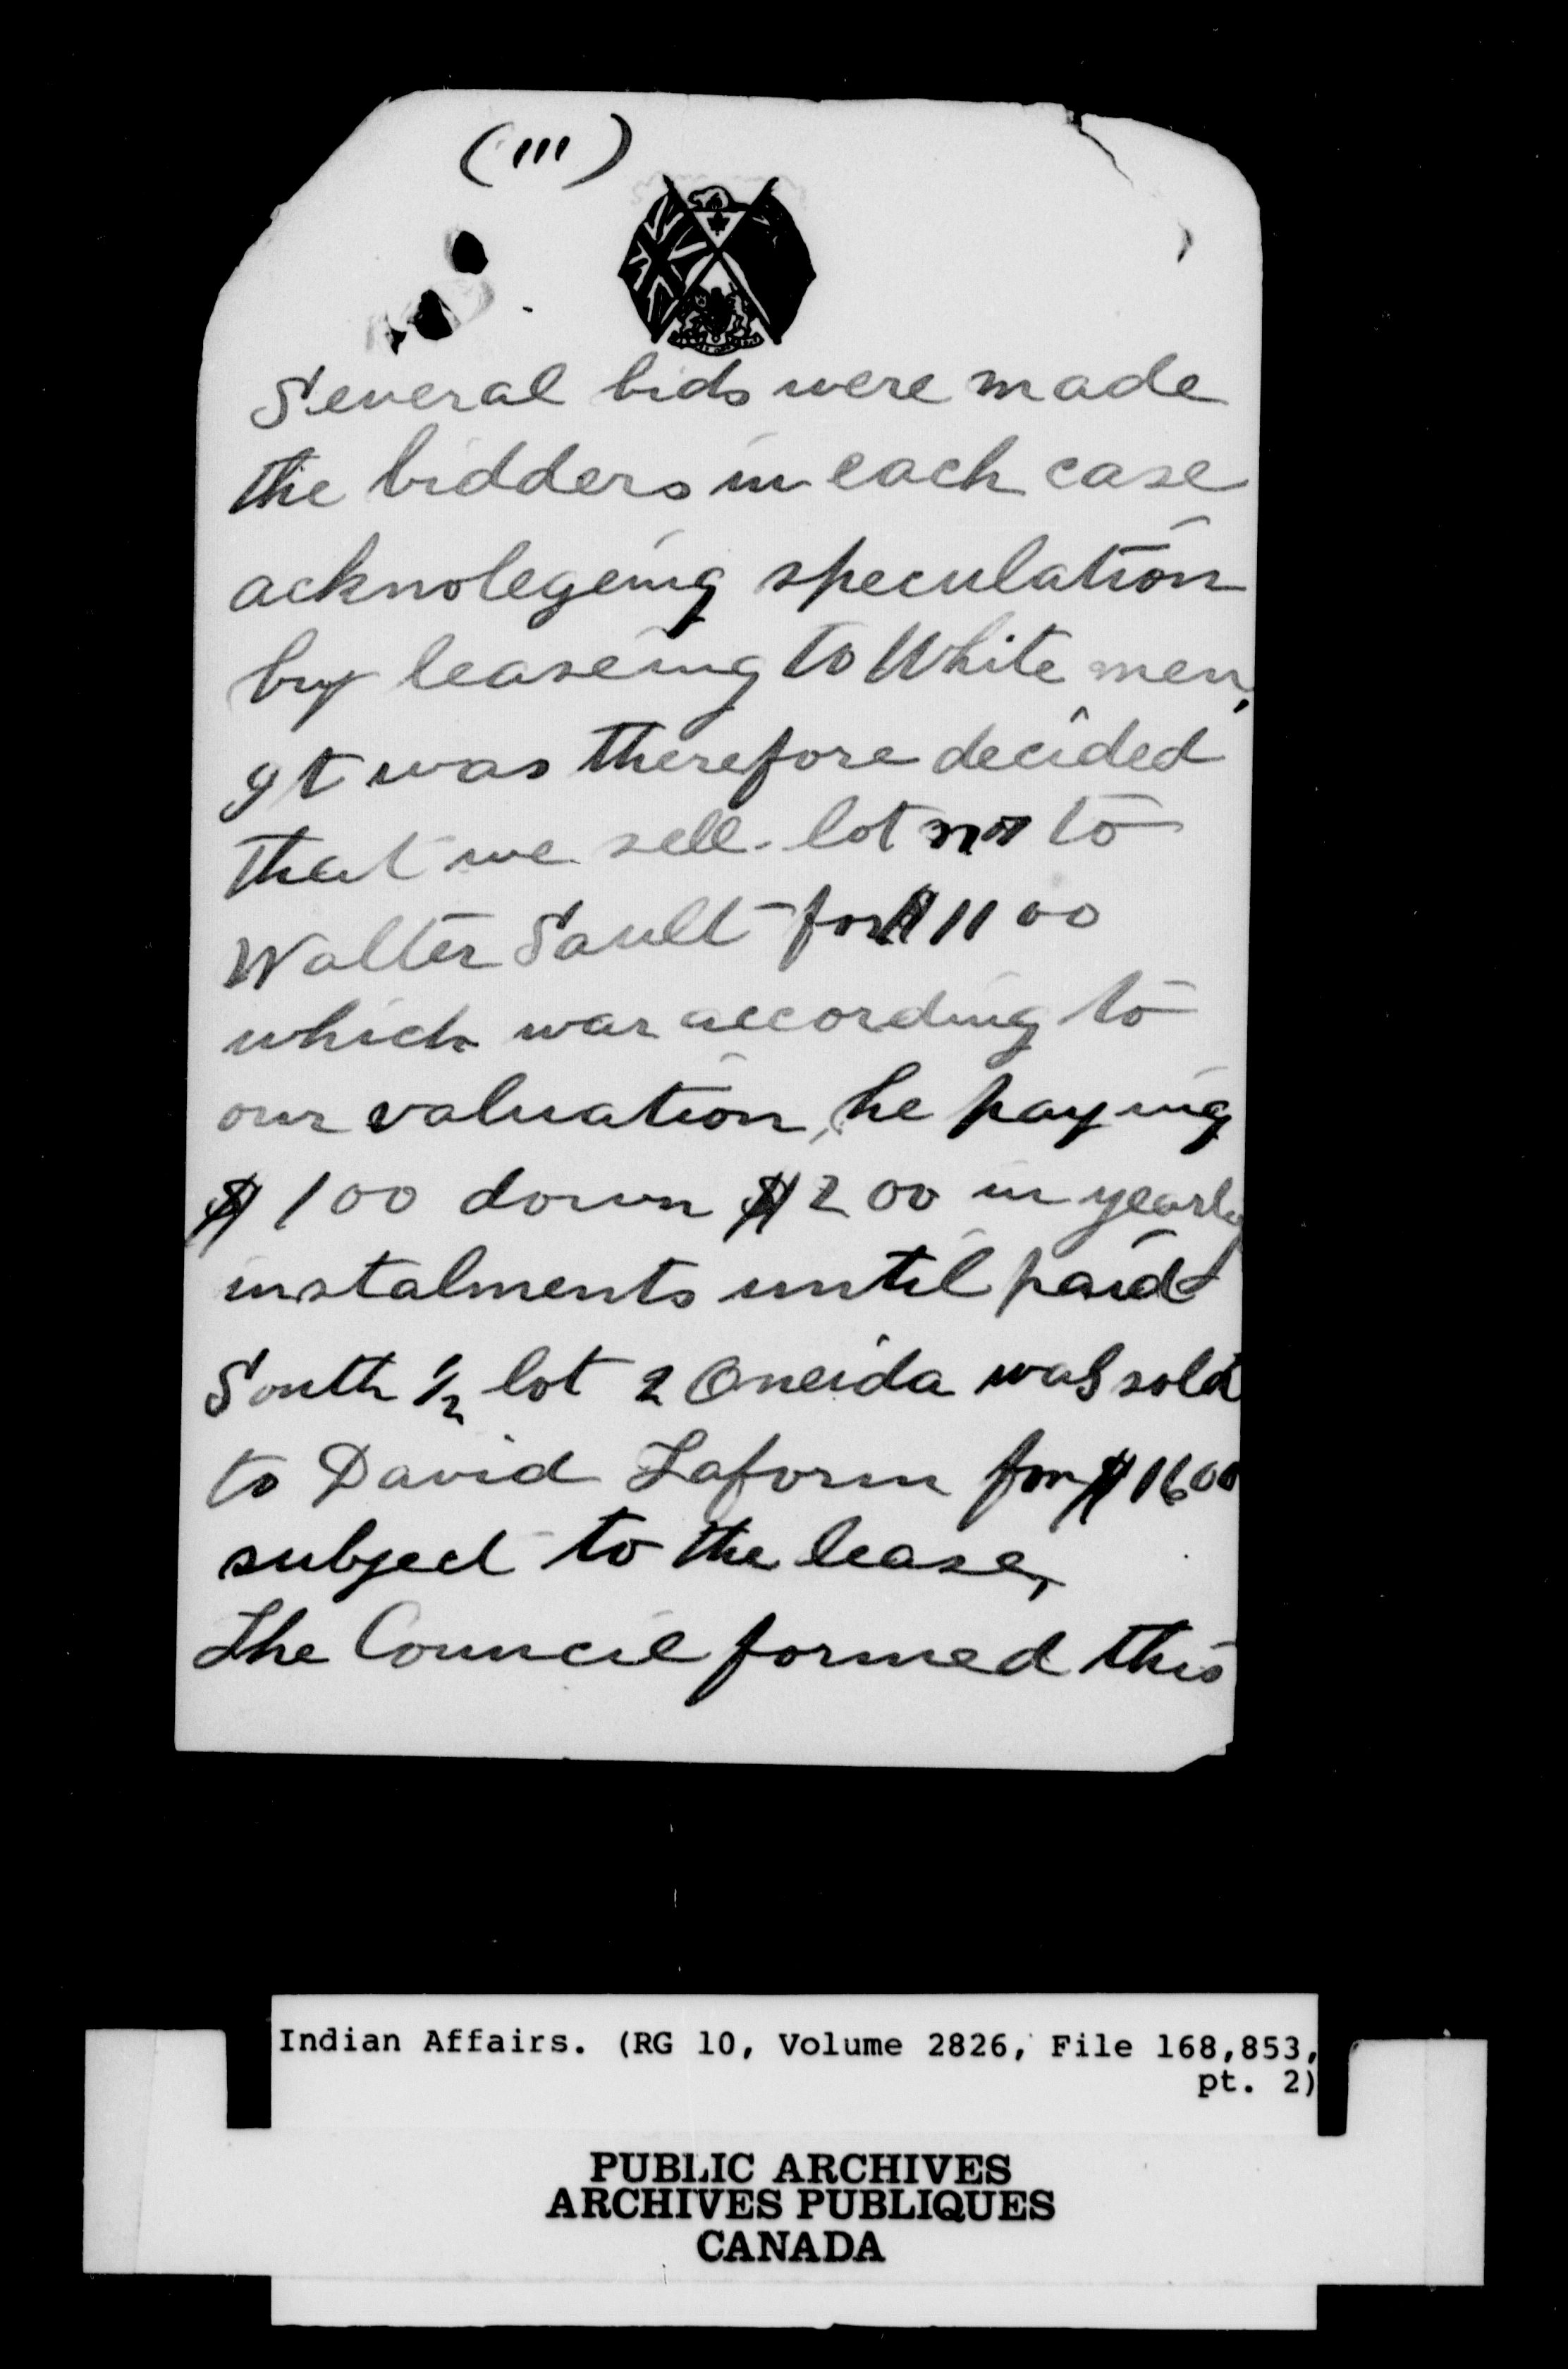 (111)
Several bids were made
the bidders in each case
acknolegeing speculation
by leaseing to White men,
It was therefore decided
that we sell lot to
Walter Sault for $1100
which was according to
our valuation, he paying
$100 down $200 in yearly
instalments until paid
South 1/2 lot 2 Oneida was sold
to David Laform for $1600
subject to the lease,
The Council formed this
Indian Affairs. (RG 10, Volume 2826, File 168,853,
pt. 2)
PUBLIC ARCHIVES
ARCHIVES PUBLIQUES
CANADA